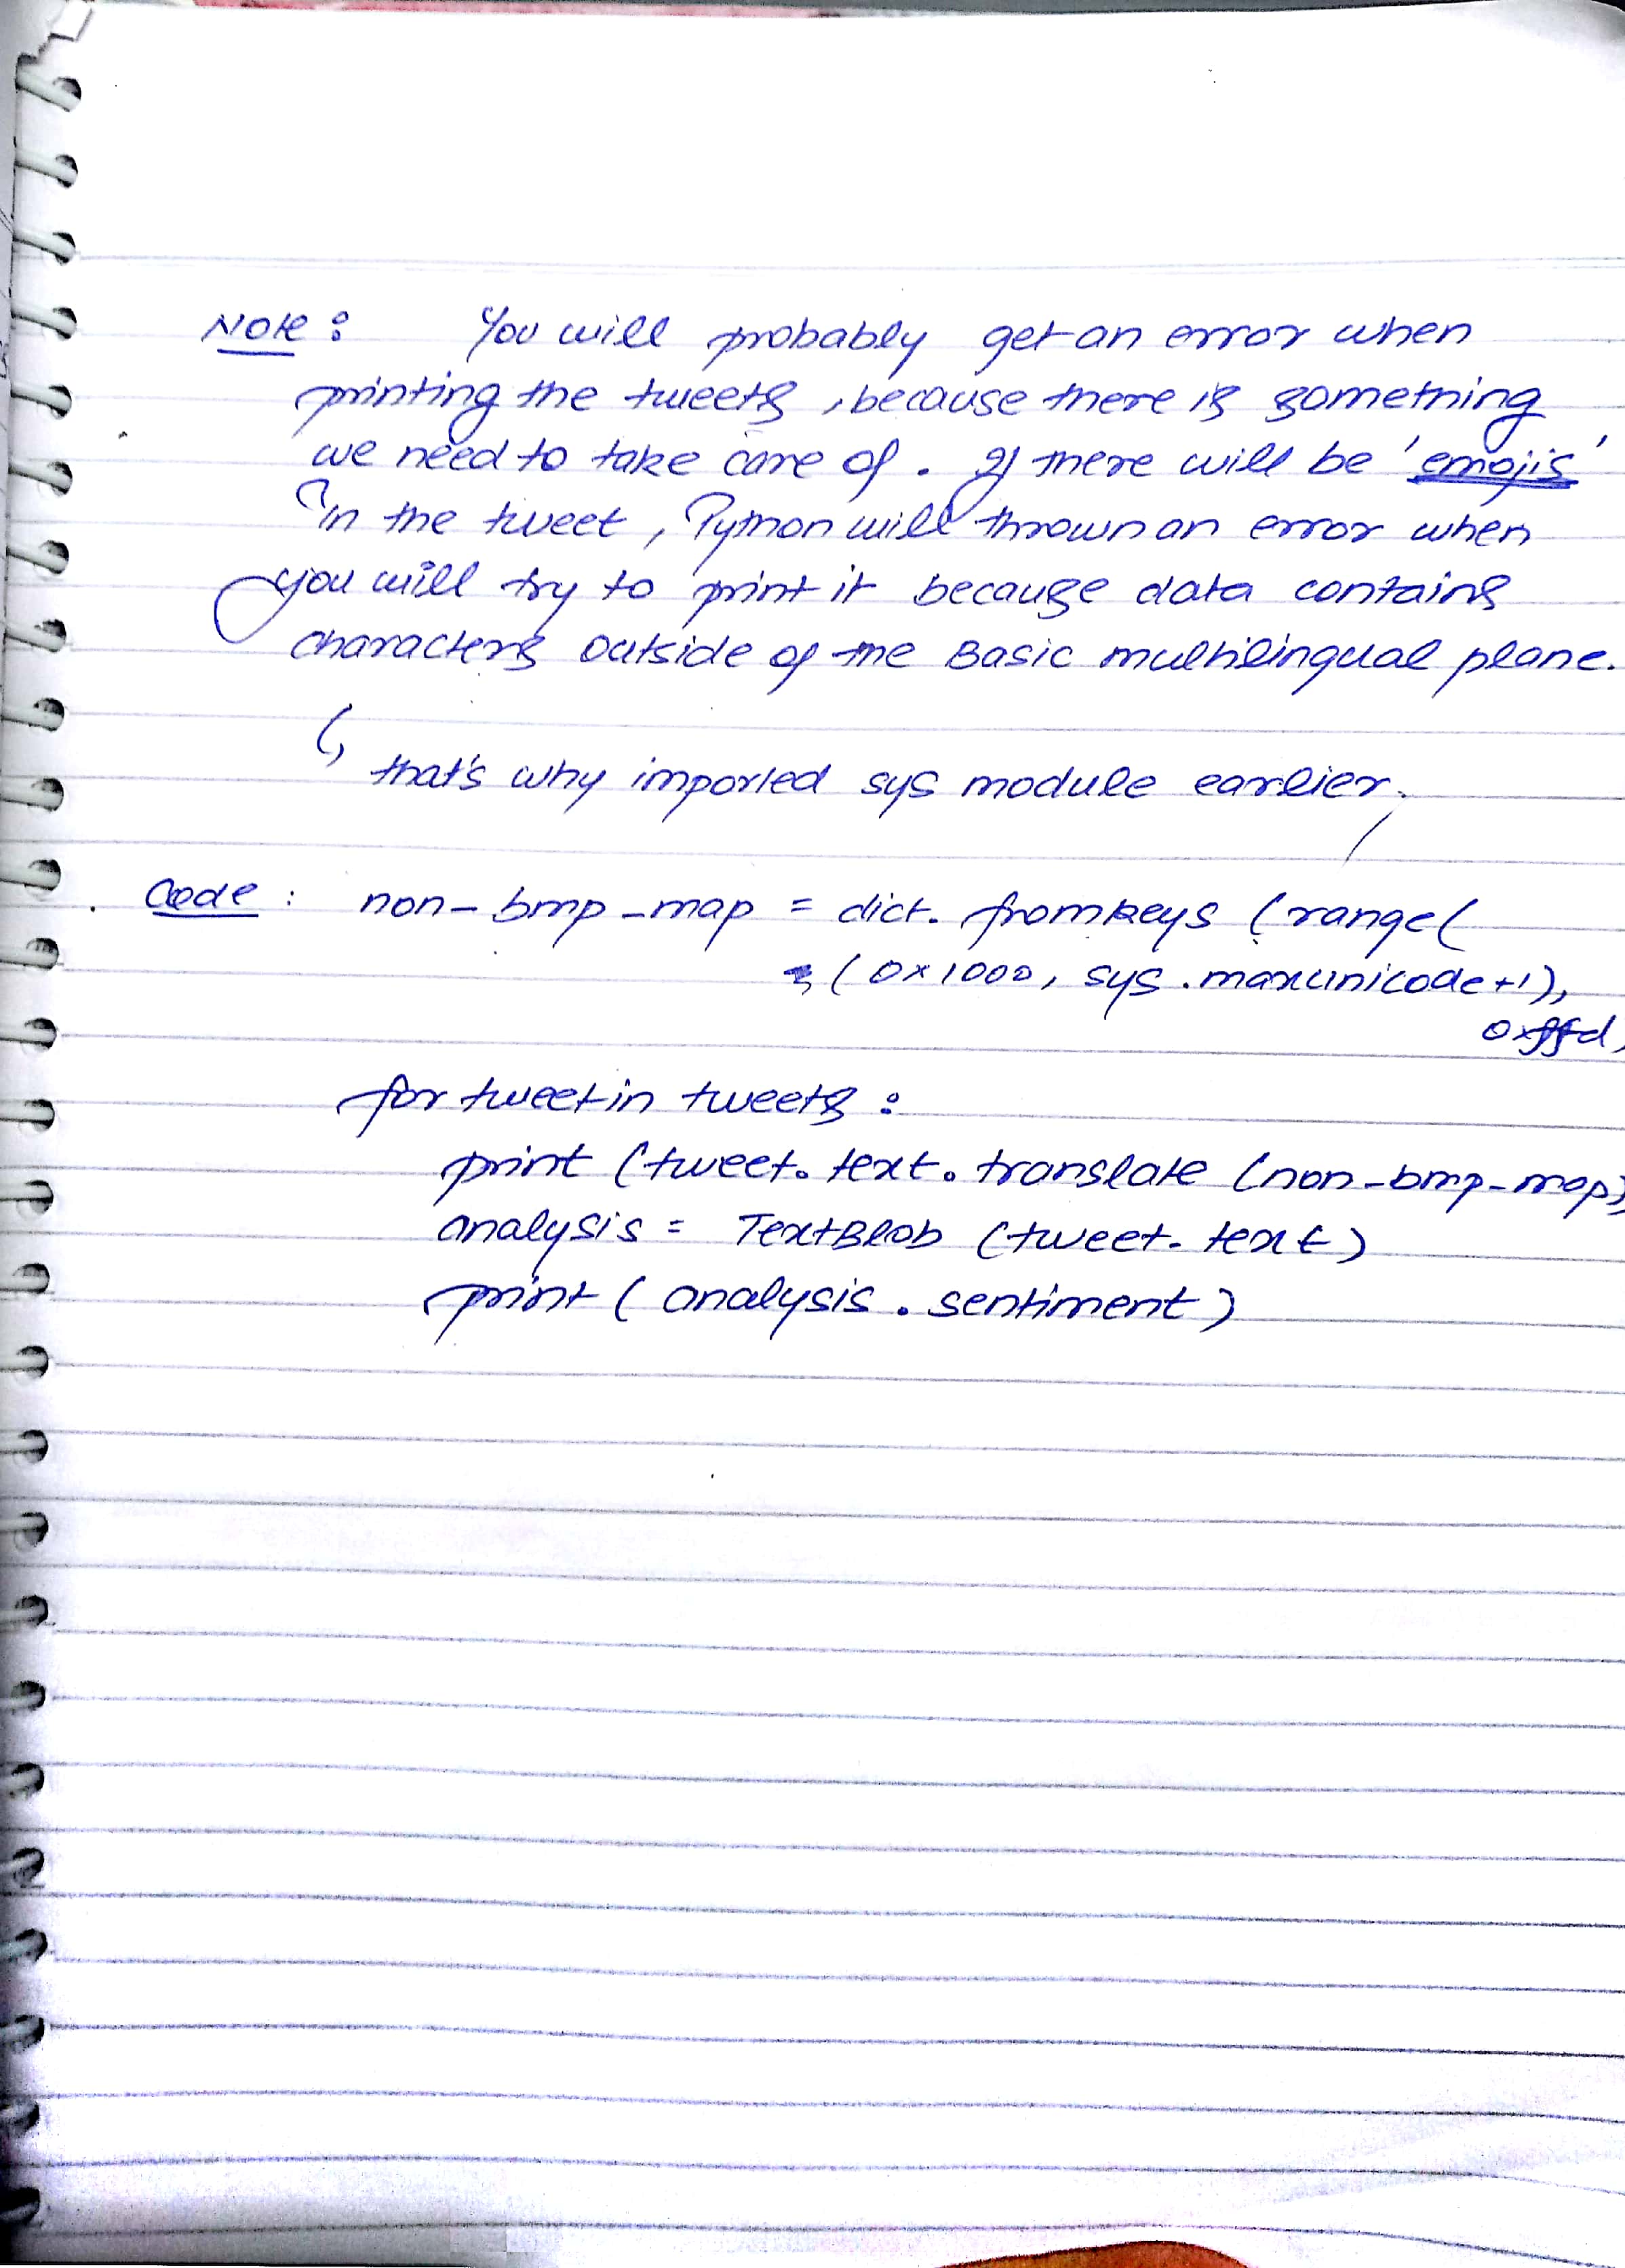 Note : You will probably get an error when
printing the tweets , because there is something
we need to take care of . If there will be 'emojis'
in the tweet , Python will thrown an error when
you will try to print it because data contains
characters outside of the Basic multilingual plane.
↳ that's why imported sys module earlier.
Code : non_bmp_map = dict. fromkeys (range(
(0x1000, sys .maxunicode+1),
0xfffd)
for tweet in tweets :
print (tweet. text. translate (non_bmp_map)
analysis = TextBlob (tweet. text)
print ( analysis . sentiment)